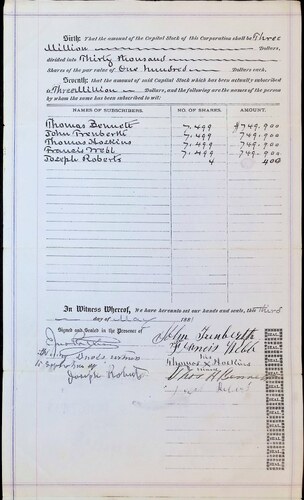 Sixth: That the amount of the Capital Stock of this Corporation shall be Three
Million Dollars,
divided into Thirty thousand
Shares of the par value of One hundred Dollars each.
Seventh: That the amount of said Capital Stock which has been actually subscribed
is Three Million Dollars, and the following are the names of the persons
by whom the same has been subscribed to wit:
NAMES OF SUBSCRIBERS. NO. OF SHARES. AMOUNT.
Thomas Bennett 7.499 $749.900
John Trenberth 7.499 749.900
Thomas Hoskins 7.499 749.900
Francis Webb 7.499 749.900
Joseph Roberts 4 400
In Witness Whereof, We have hereunto set our hands and seals, this third
day of May 188
Signed and Sealed in the Presence of
John Trenberth
Francis Webb
his
Thomas X Hoskins
mark
Thos Bennett
witness
to signature of
Joseph Roberts
SEAL
SEAL
SEAL
SEAL
SEAL